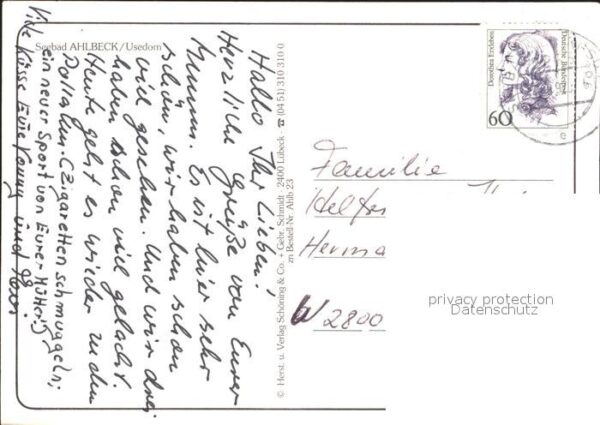 Seebad AHLBECK/Usedom
Hallo Ihr Lieben!
Herzliche Grüße von Eurer
Mumm. Es ist hier sehr
schön, wir haben schon
viel gesehen. Und wir drei
haben schon viel gelacht.
Heute geht es wieder zu den
Pollaken. (Zigaretten schmuggeln;
ein neuer Sport von Eurer Mutter.)
Viele Küsse Eure und
© Herst. u. Verlag Schöning & Co. + Gebr. Schmidt · 2400 Lübeck · ☎ (0451) 310 310 0
zn Bestell-Nr. Ahlb 23
Dorothea Erxleben
Deutsche Bundespost
60
Familie
Helfer
Herma
W 2800
privacy protection
Datenschutz